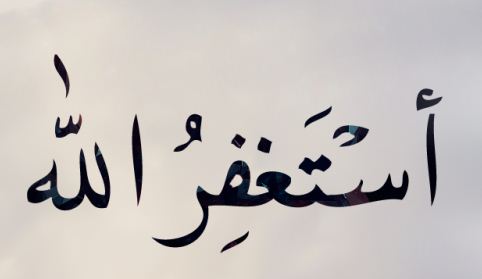 أسْتَغفِرُ اللّٰه